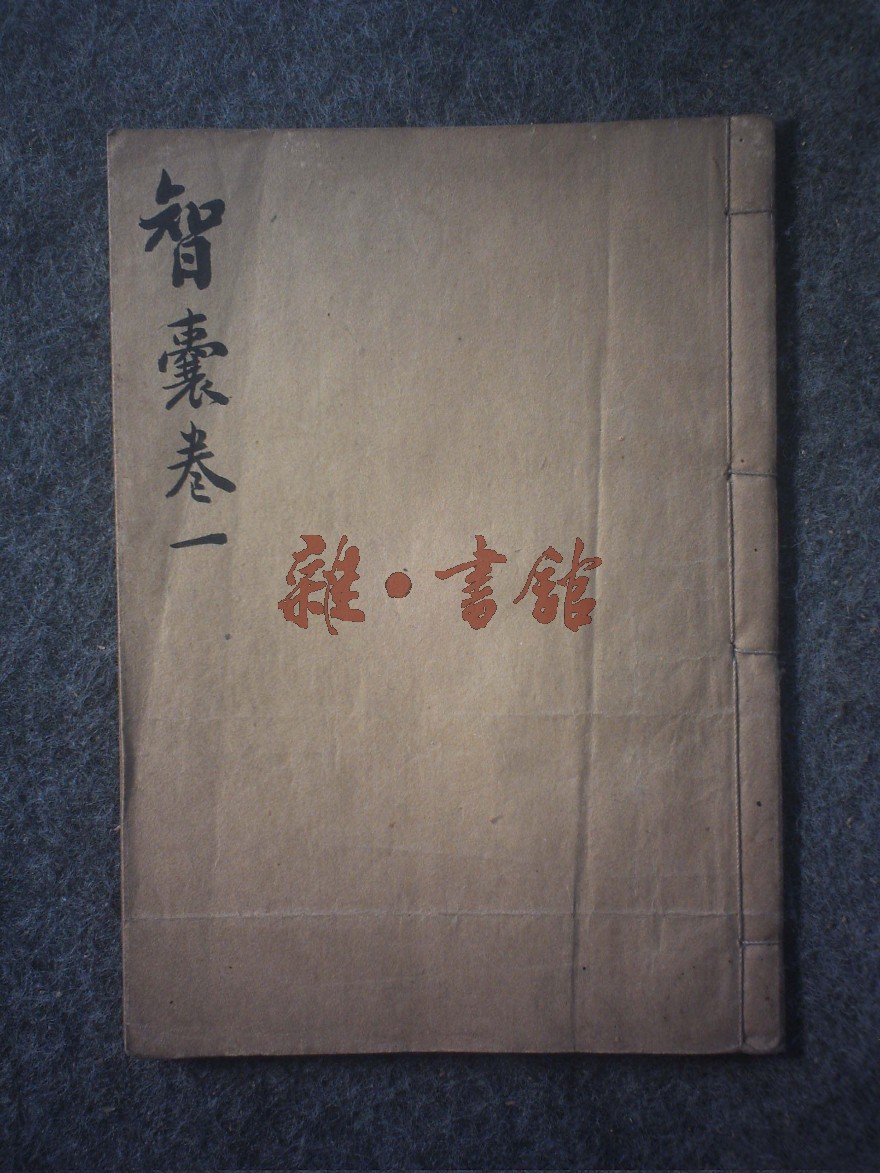 智囊卷一
雜·書館